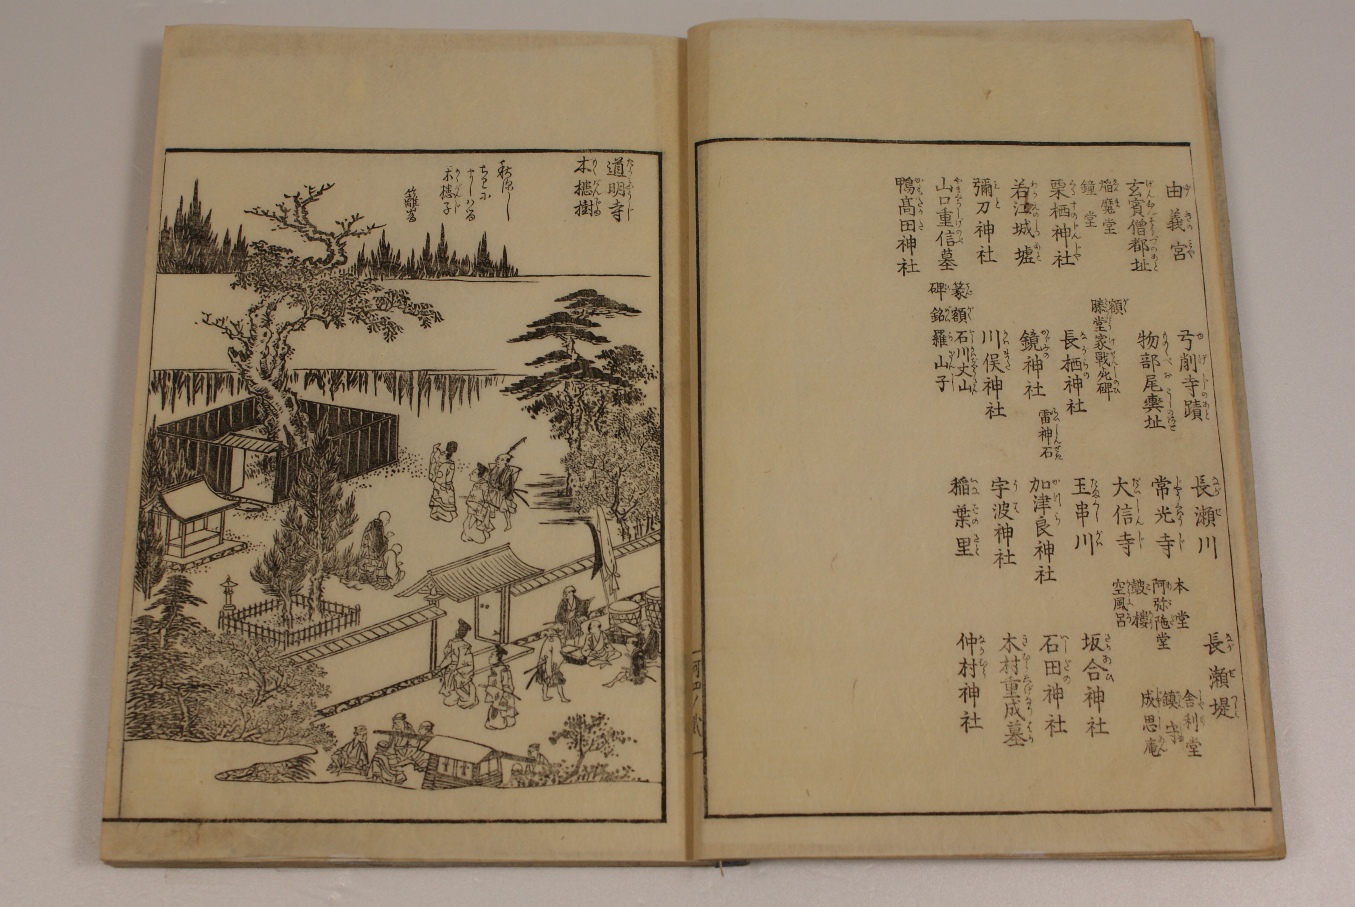 由義宮
弓削寺蹟
長瀬川
長瀬堤
玄賓僧都址
物部尾輿址
常光寺
本堂
阿弥陁堂
皷樓
空風呂
舎利堂
鎮守
成思庵
焔魔堂
鏡堂
額
藤堂家戰死碑
大信寺
栗栖神社
長栖神社
玉串川
坂合神社
若江城墟
鏡神社
雷神石
加津良神社
石田神社
彌刀神社
川俣神社
宇波神社
木村重成墓
山口重信墓
篆額
石川丈山
碑銘
羅山子
稲葉里
仲村神社
鴨髙田神社
道明寺
木槵樹
木槵子
籬嶌